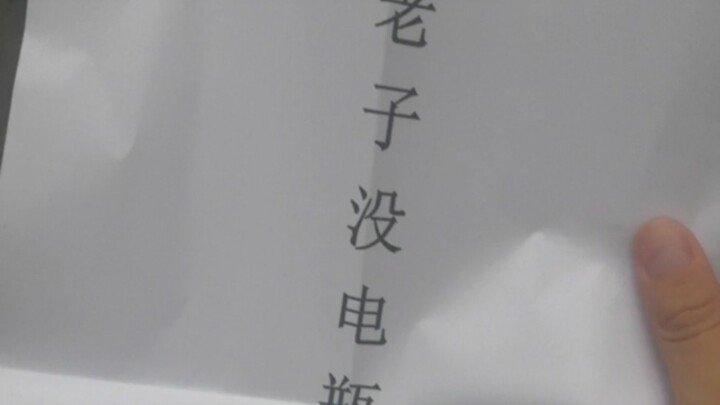 老子没电瓶